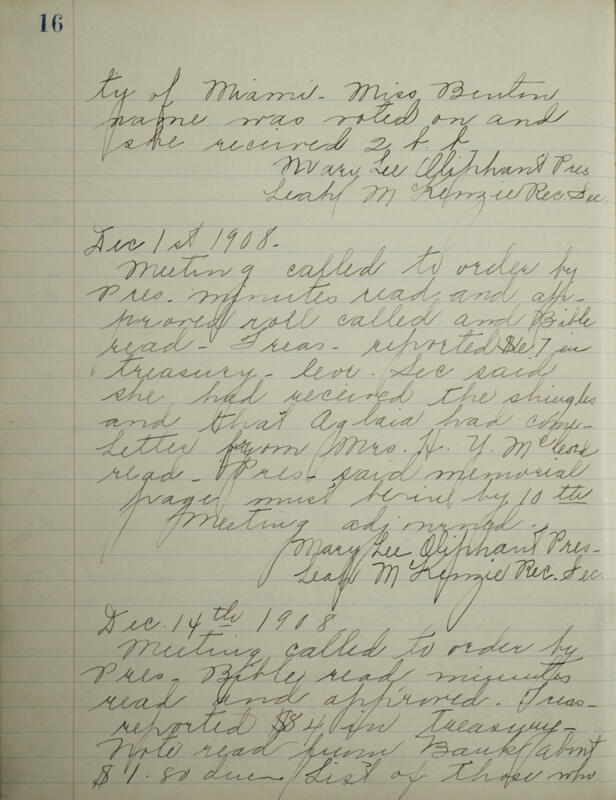 16
ty of Miami - Miss Benton
name was voted on and
she received 2 b. b.
Mary Lee Oliphant Pres
Leah McKenzie Rec. Sec.
Dec 1st 1908 -
Meeting called to order by
Pres. minutes read and ap-
proved roll called and Bible
read - Treas. reported in
treasury - Cor. Sec said
she had received the shingles
and that Aglaia had come -
Letter from Mrs. H. Y. McCord
read - Pres. said memorial
page must be in by 10th
Meeting adjourned.
Mary Lee Oliphant Pres -
Leah McKenzie Rec. Sec.
Dec. 14th 1908
Meeting called to order by
Pres - Bible read minutes
read and approved. Treas -
reported $4 in treasury -
Note read from Bank about
$1.80 due - List of those who